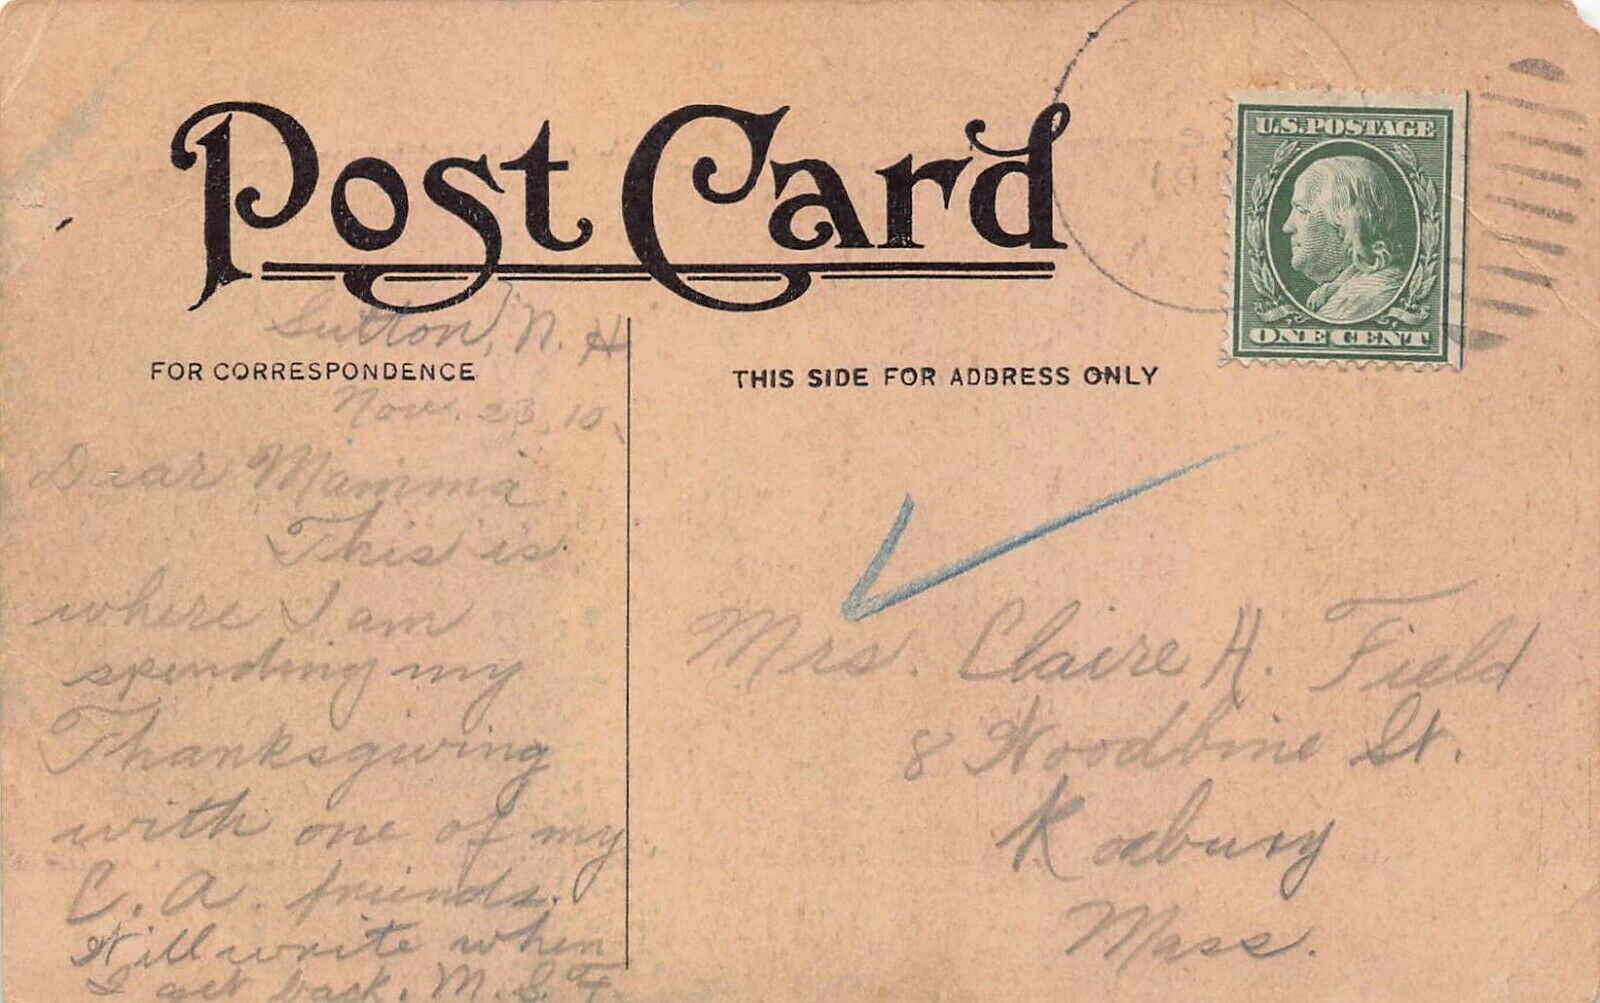 Post Card
U.S. POSTAGE
ONE CENT
Sutton, N. H
FOR CORRESPONDENCE
Nov. 23, 10.
Dear Mamma
This is
where I am
spending my
Thanksgiving
with one of my
C. A. friends.
Will write when
I get back. M. S. F.
THIS SIDE FOR ADDRESS ONLY
Mrs. Claire H. Field
8 Woodbine St.
Roxbury
Mass.